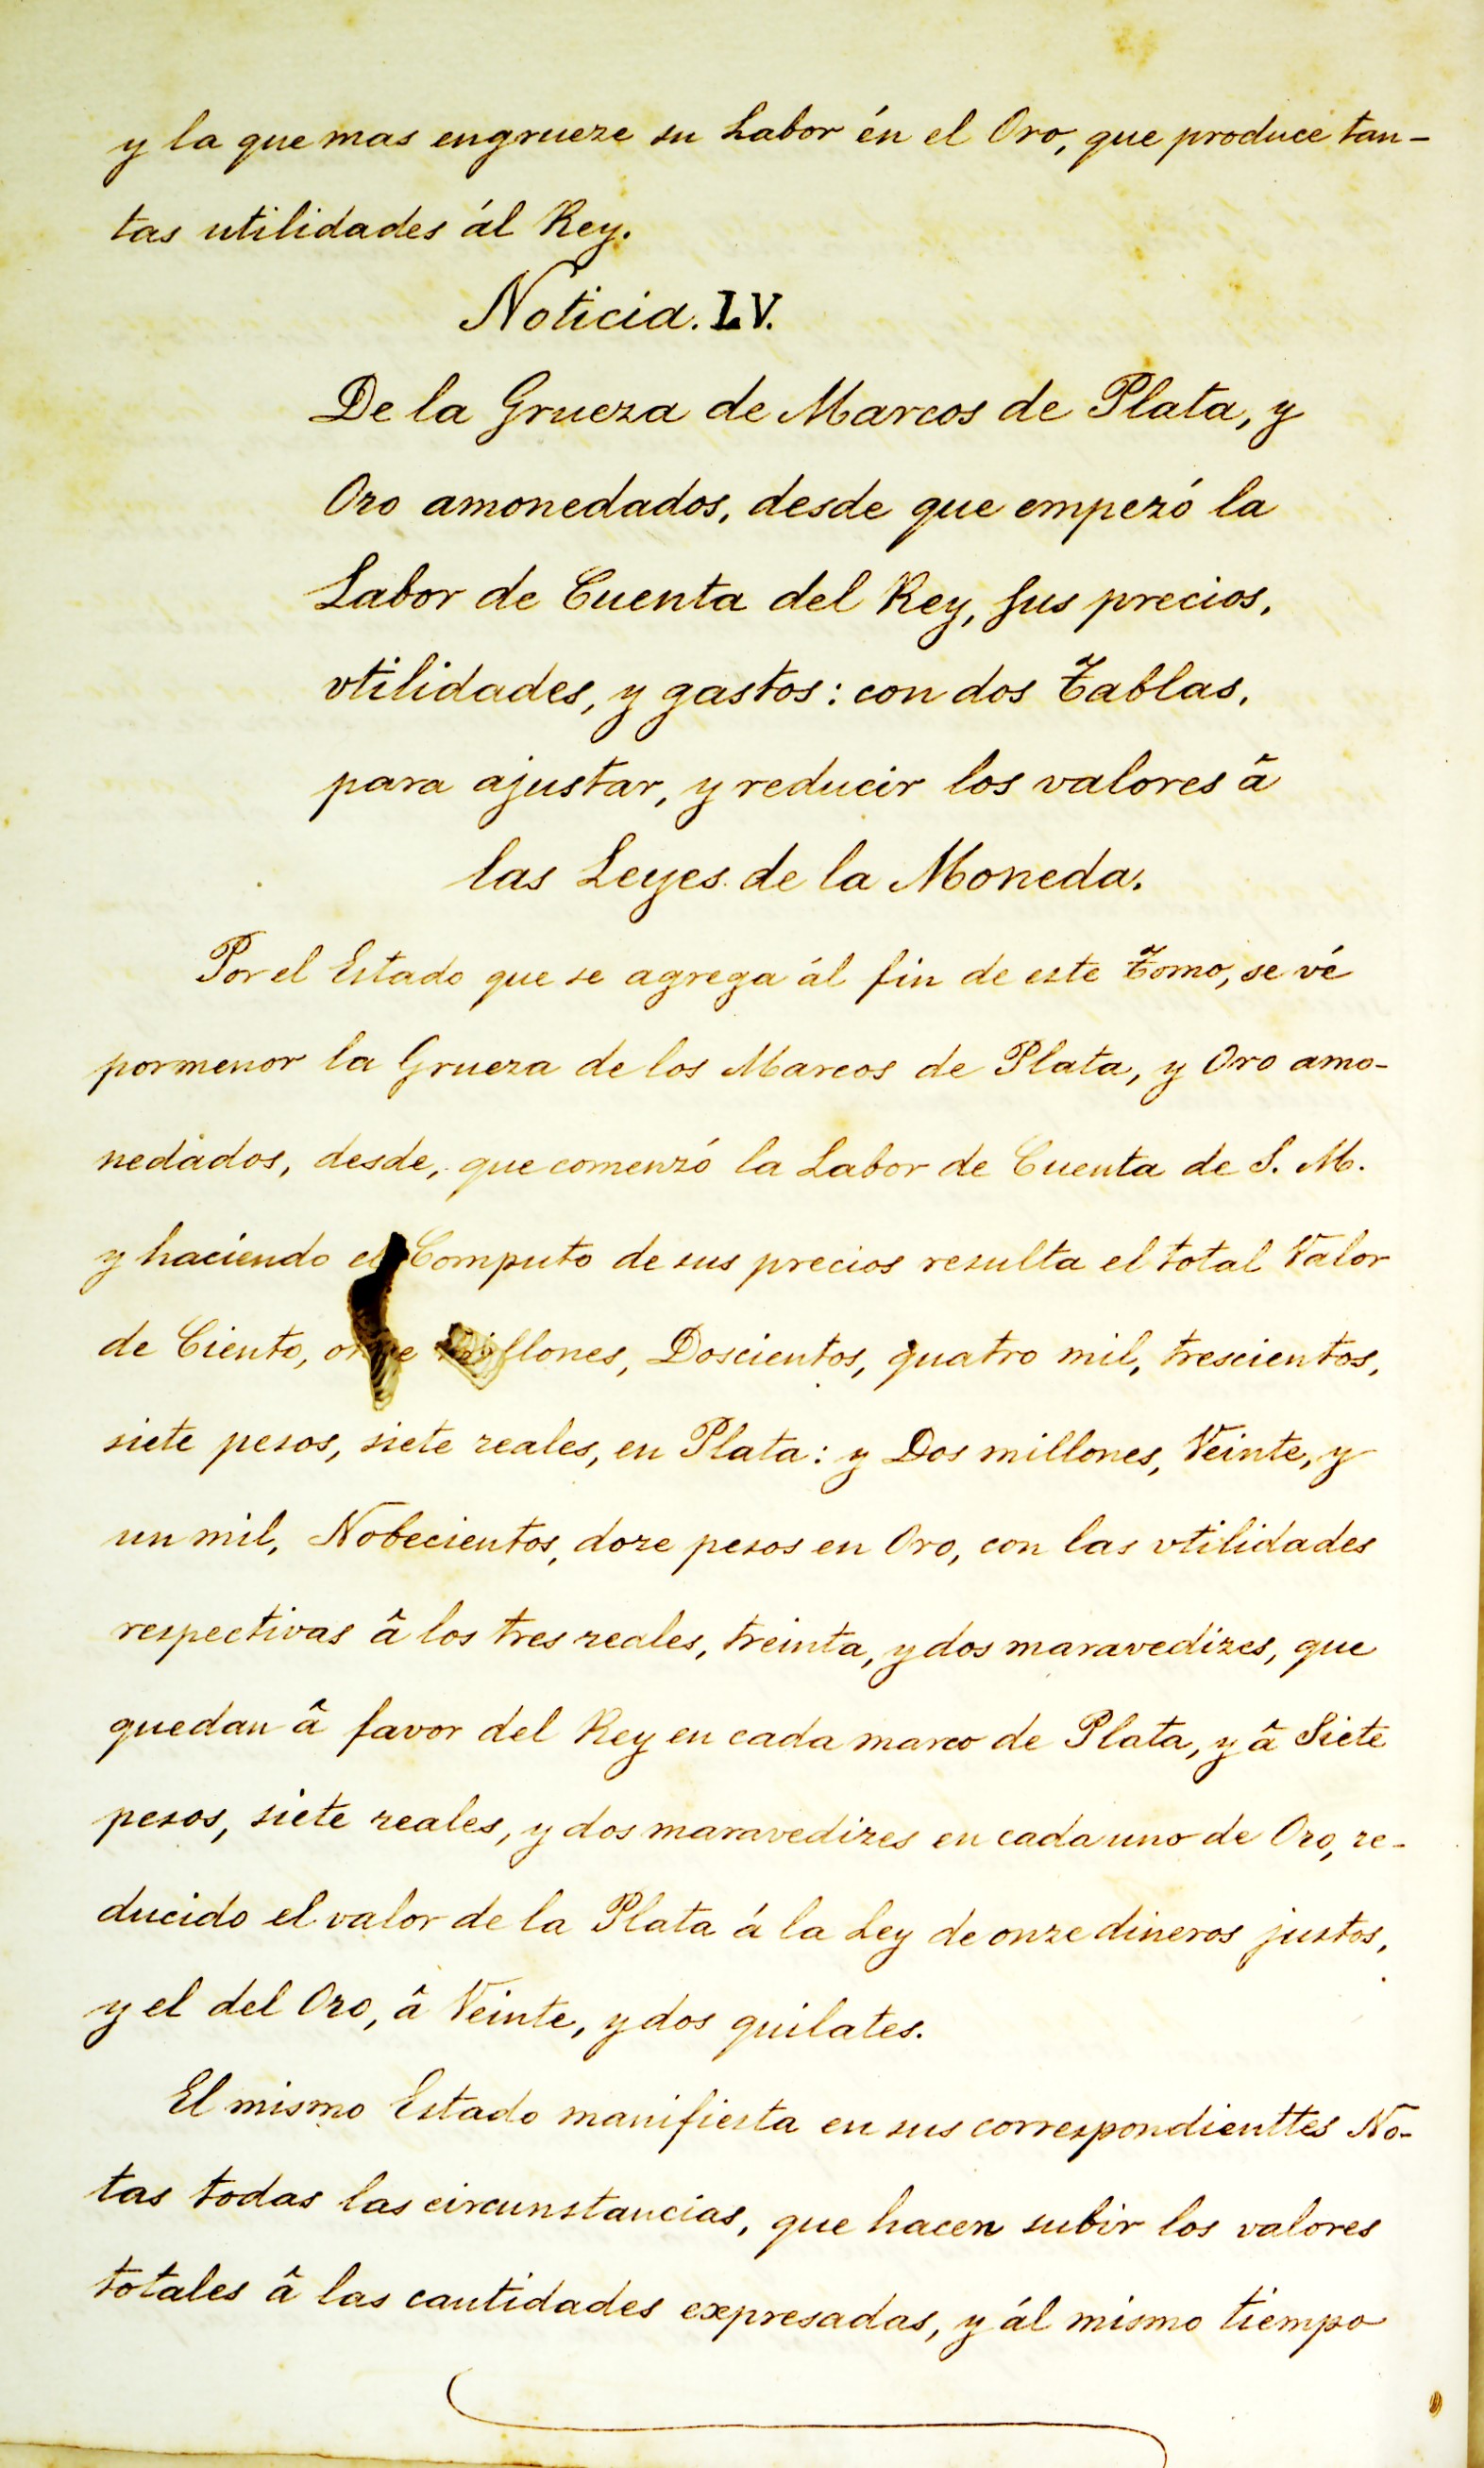 y la que mas engrueze su Labor én el Oro, que produce tan-
tas utilidades ál Rey.
Noticia. LV.
De la Grueza de Marcos de Plata, y
Oro amonedados, desde que empezó la
Labor de Cuenta del Rey, sus precios,
vtilidades, y gastos: con dos Tablas,
para ajustar, y reducir los valores â
las Leyes de la Moneda.
Por el Estado que se agrega ál fin de este Tomo, se vé
pormenor la Grueza de los Marcos de Plata, y Oro amo-
nedados, desde, que comenzó la Labor de Cuenta de S. M.
y haciendo el Computo de sus precios resulta el total Valor
de Ciento, onze millones, Doscientos, quatro mil, trescientos,
siete pesos, siete reales, en Plata: y Dos millones, Veinte, y
un mil, Nobecientos, doze pesos en Oro, con las vtilidades
respectivas â los tres reales, treinta, y dos maravedizes, que
quedan â favor del Rey en cada marco de Plata, y â Siete
pesos, siete reales, y dos maravedizes en cada uno de Oro, re-
ducido el valor de la Plata á la Ley de onze dineros justos,
y el del Oro, â Veinte, y dos quilates.
El mismo Estado manifiesta en sus correspondienttes No-
tas todas las circunstancias, que hacen subir los valores
totales â las cantidades expresadas, y ál mismo tiempo